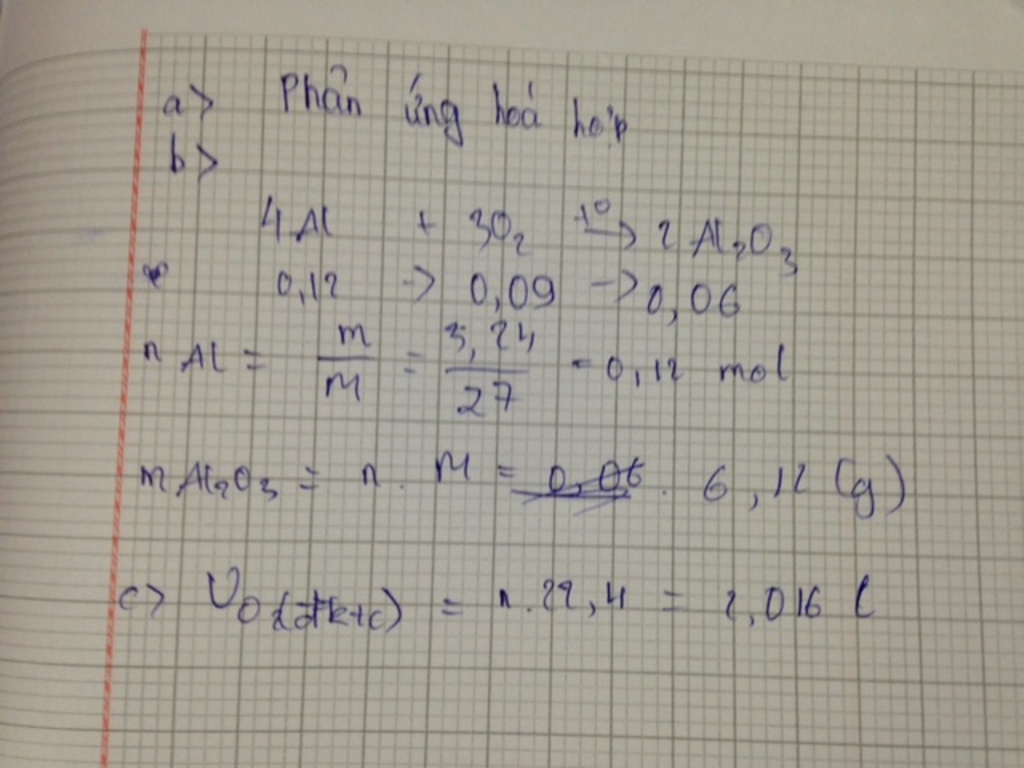 a> Phản ứng hoá hợp
b>
4Al + 3O₂ t⁰→ 2 Al₂O₃
0,12 -> 0,09 -> 0,06
n Al = m/M = 3,24/27 = 0,12 mol
m Al₂O₃ = n. M = 0,06. 6,12 (g)
c> VO₂(đktc) = n.22,4 = 2,016 l